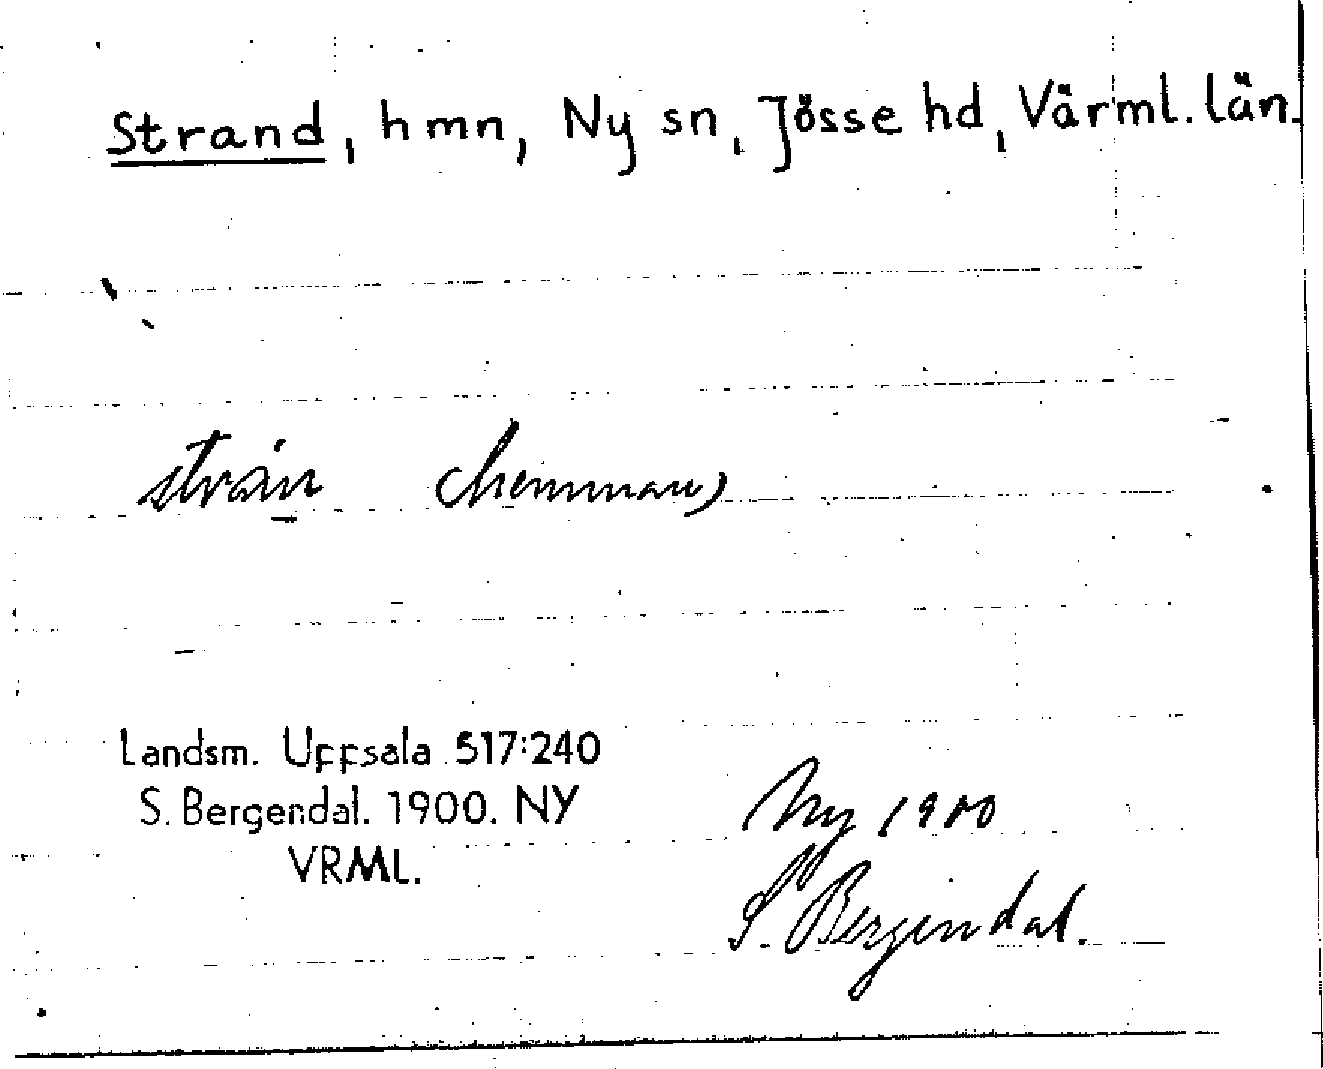 Strand, hmn, Ny sn, Jösse hd, Värml. län.
strán (hemman)
Landsm. Uppsala 517:240
S. Bergendal. 1900. NY
VRML.
Ny 1900
S. Bergendal.